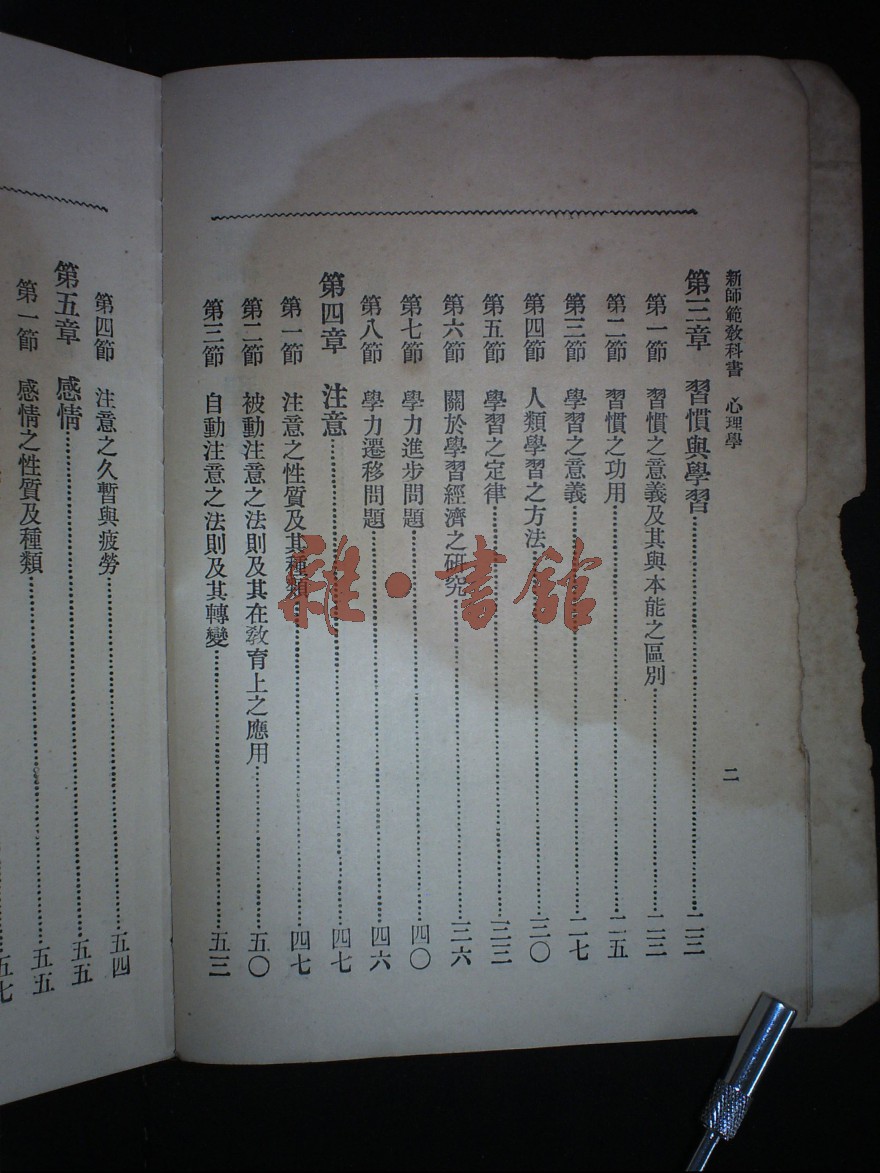 新師範敎科書　心理學　二
第三章　習慣與學習……二三
第一節　習慣之意義及其與本能之區別……二三
第二節　習慣之功用……二五
第三節　學習之意義……二七
第四節　人類學習之方法……三〇
第五節　學習之定律……三三
第六節　關於學習經濟之研究……三六
第七節　學力進步問題……四〇
第八節　學力遷移問題……四六
第四章　注意……四七
第一節　注意之性質及其種類……四七
第二節　被動注意之法則及其在敎育上之應用……五〇
第三節　自動注意之法則及其轉變……五三
第四節　注意之久暫與疲勞……五四
第五章　感情……五五
第一節　感情之性質及種類……五五
五七
雜·書館